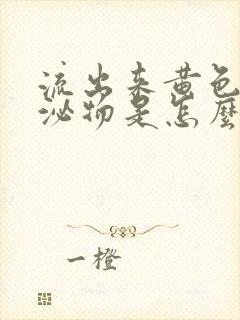 流出来黄色
泌物是怎麽
一橙